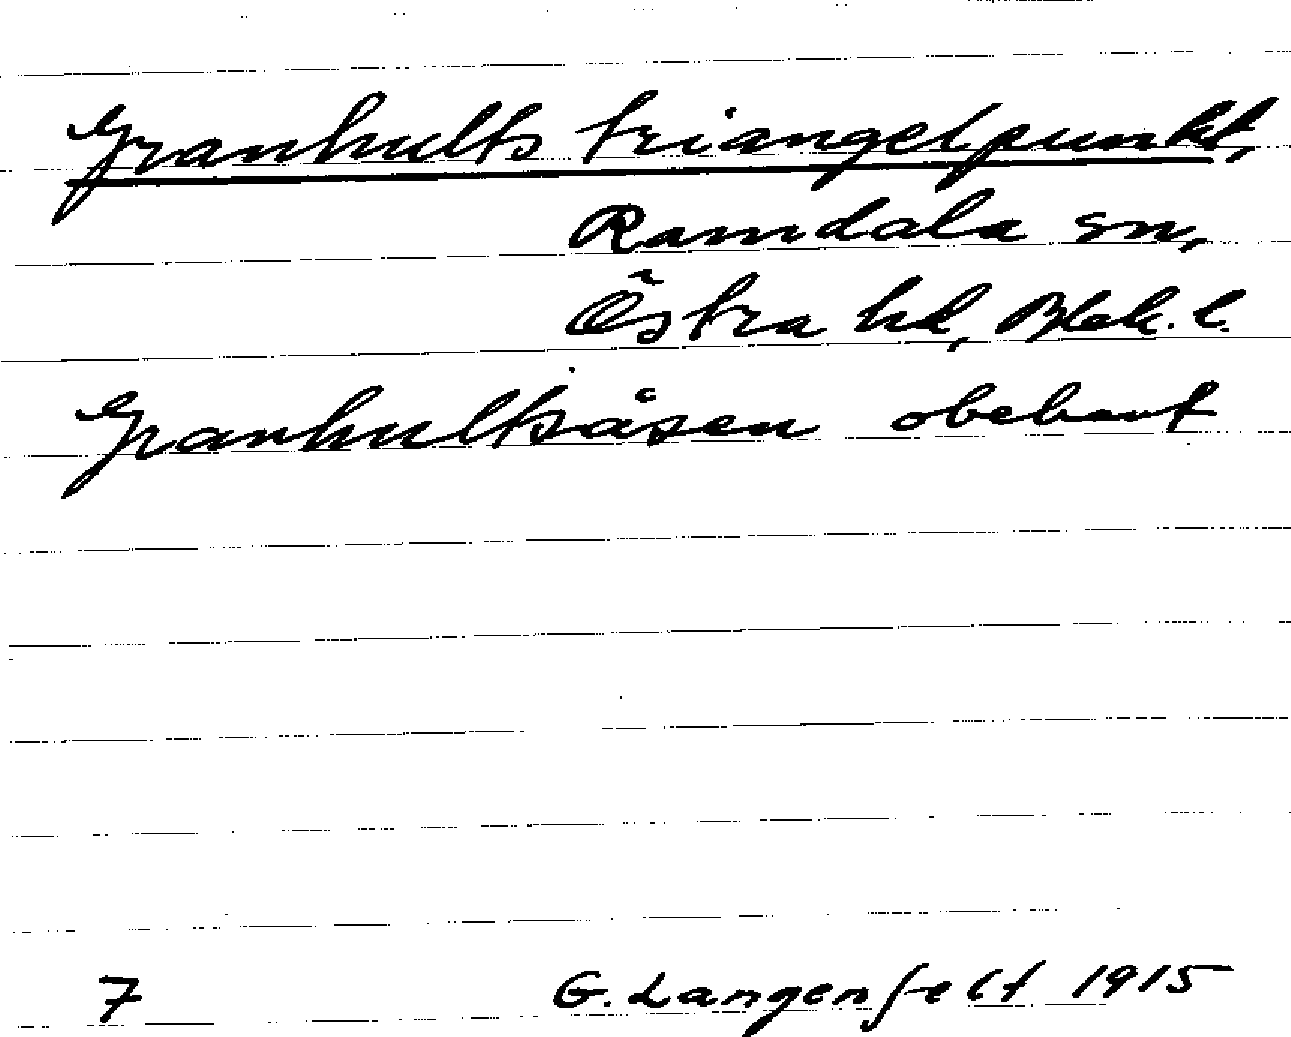 Granhults triangelpunkt,
Ramdala sn,
Östra hd, Blek. l.
Granhultsåsen obekant
7 G. Langenfelt 1915